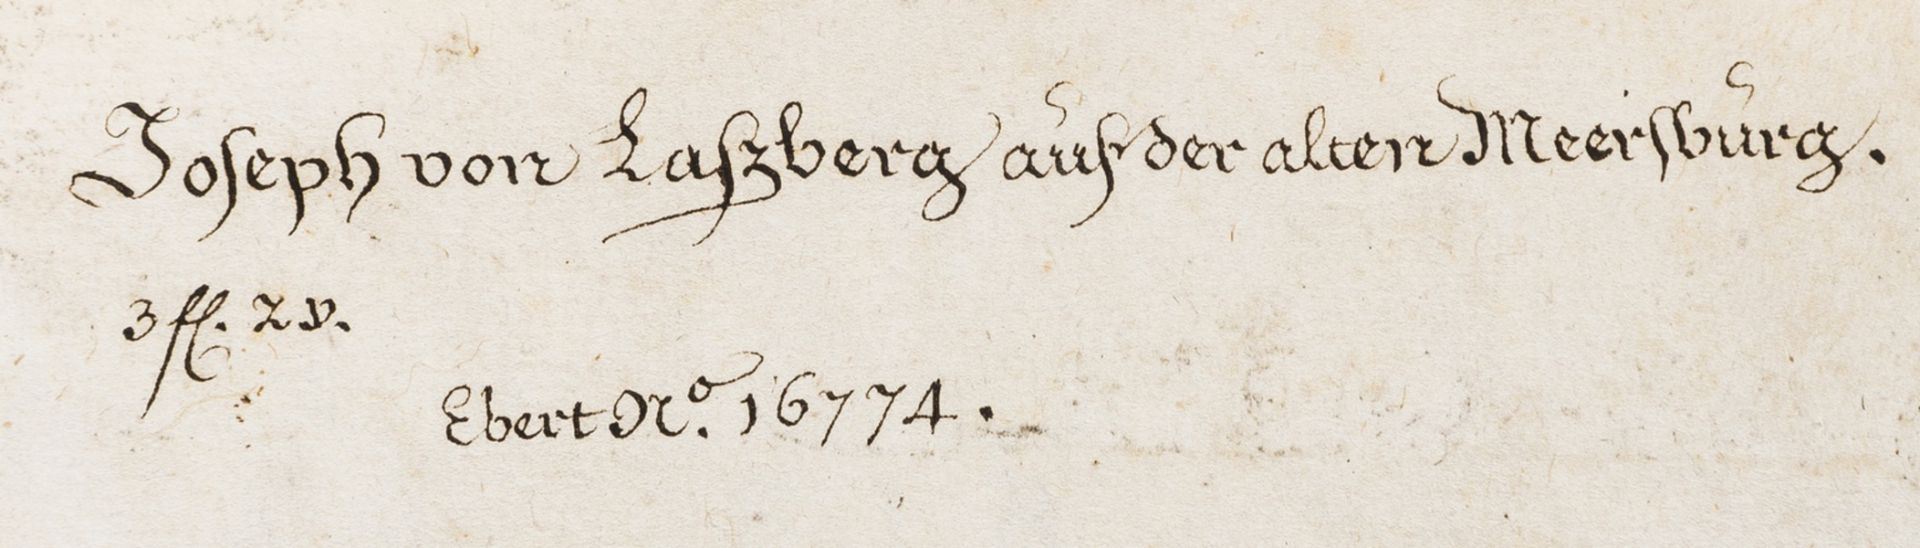 Joseph von Laßberg auf der alten Meersburg.
3 fl. 2 x.
Ebert No. 16774.